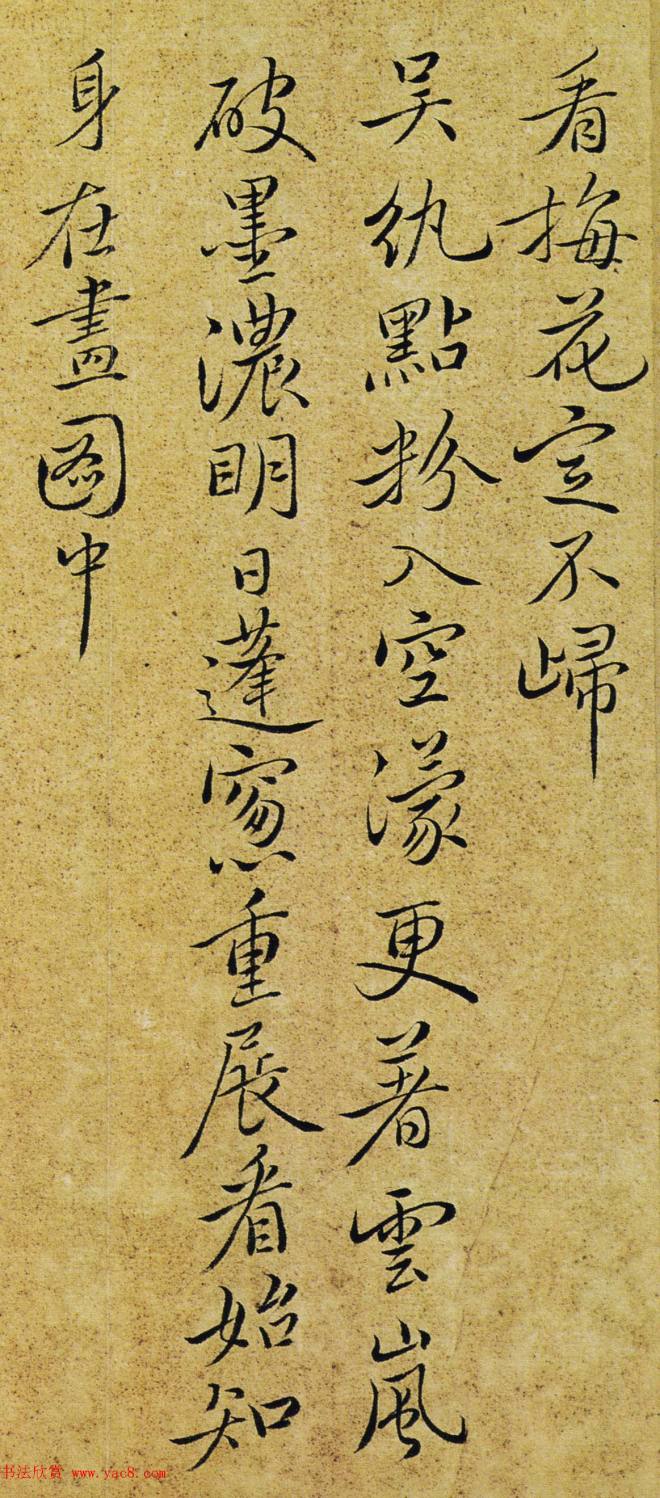 看梅花定不歸
吳紈點粉入空濛更著雲嵐
破墨濃明日蓬窻重展看始知
身在畫圖中
书法欣赏 www.yac8.com